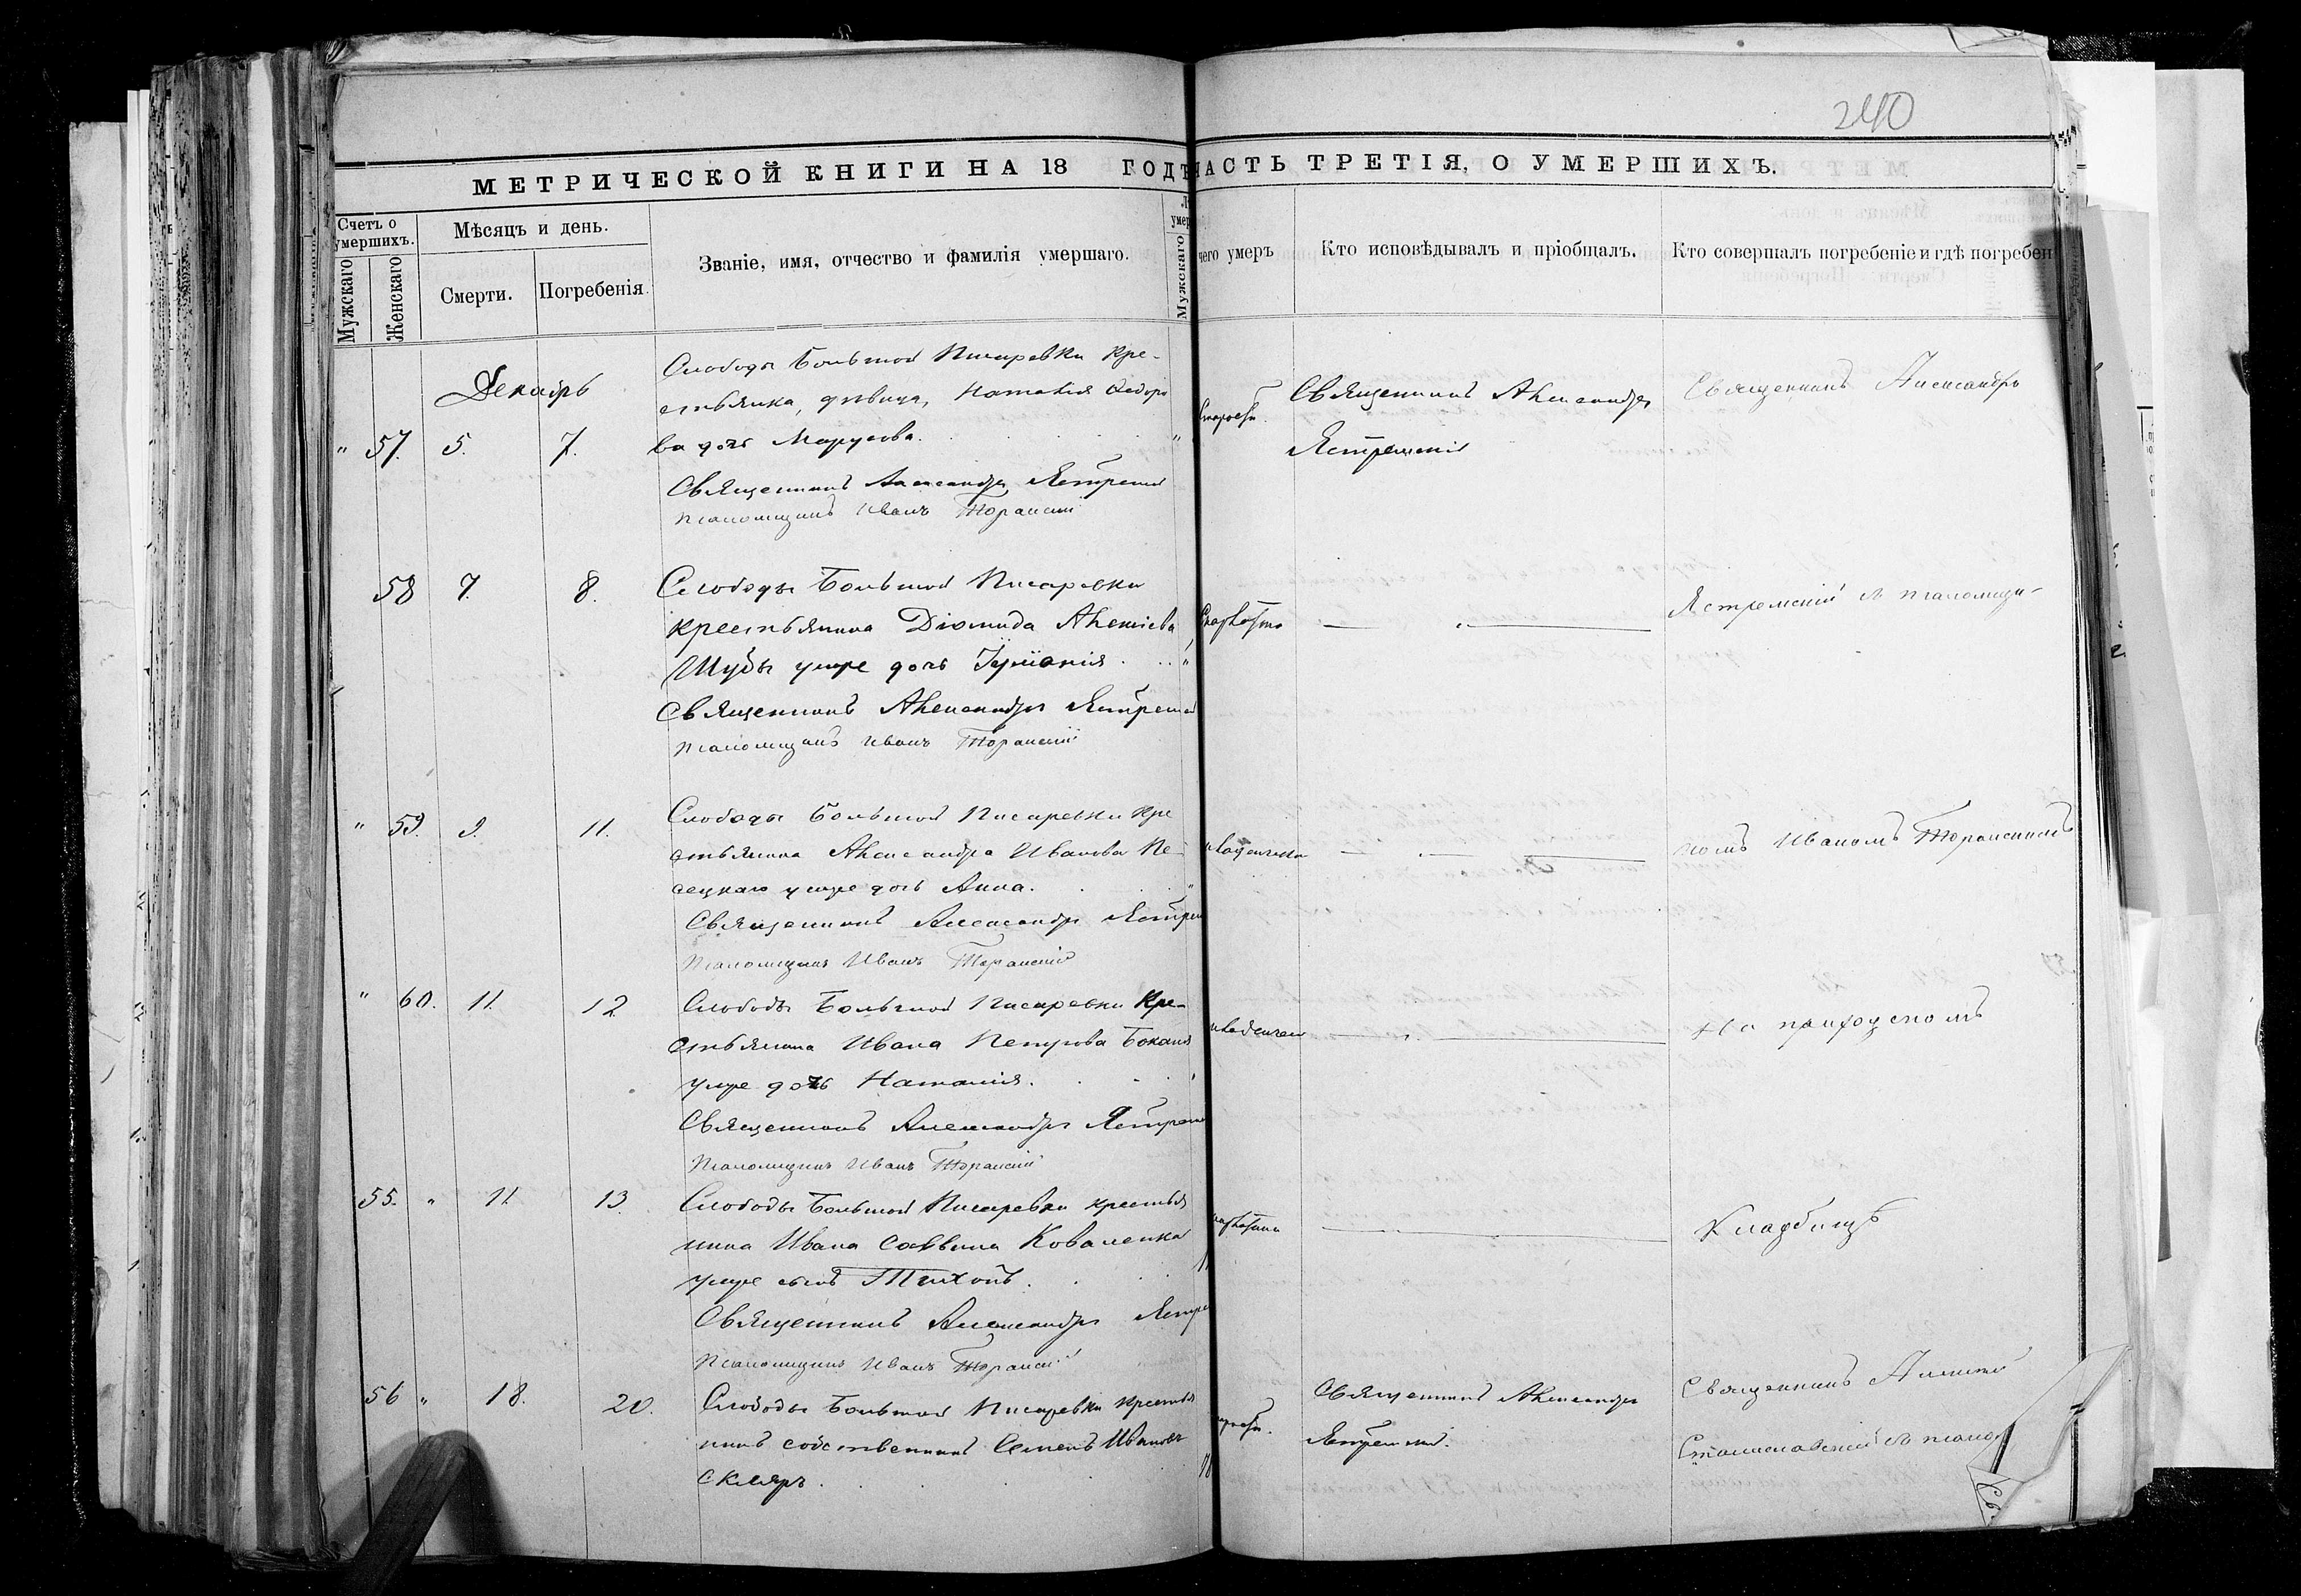 240
МЕТРИЧЕСКОЙ КНИГИ НА 18 ГОДЪ
ЧАСТЬ ТРЕТІЯ, О УМЕРШИХЪ.
Счетъ о умершихъ.
Мужскаго
Женскаго
Мѣсяцъ и день.
Смерти.
Погребенія.
Званіе, имя, отчество и фамилія умершаго.
Мужскаго
чего умеръ
Кто исповѣдывалъ и пріобщалъ.
Кто совершалъ погребеніе и гдѣ погребен
Декабрь
Слободы Большой Писаревки кре-
стьянка, дѣвица, Наталія Федоро
" 57. 5. 7. ва дочь
Священникъ Александръ Ястремскій
Псаломщикъ Иванъ Торанскій
Священникъ Александръ
Ястремскій
Священникъ Александръ
58 7. 8. Слободы Большой Писаревки
крестьянина Діомида Алексіева
Шубы умре дочь Іуліанія
Священникъ Александръ Ястремскій
Псаломщикъ Иванъ Торанскій
Ястремскій съ псаломщи-
" 59. 9. 11. Слободы Большой Писаревки кре
стьянина Александра Иванова
умре дочь Анна.
Священникъ Александръ Ястрем
Псаломщикъ Иванъ Торанскій
комъ Иваномъ Торанскимъ
" 60. 11. 12. Слободы Большой Писаревки Кре-
стьянина Ивана Петрова
умре дочь Наталія.
Священникъ Александръ Ястрем
Псаломщикъ Иванъ Торанскій
На приходскомъ
55. " 11. 13. Слободы Большой Писаревки крестья
нина Ивана Саввина Коваленка
умре сынъ Тихонъ.
Священникъ Александръ Ястре
Псаломщикъ Иванъ Торанскій
Кладбищѣ
56 " 18. 20. Слободы Большой Писаревки крестья
нинъ собственникъ Семенъ Ивановъ
Скляръ.
Священникъ Александръ
Ястремскій.
Священникъ Алексій
Станиславскій съ псалом